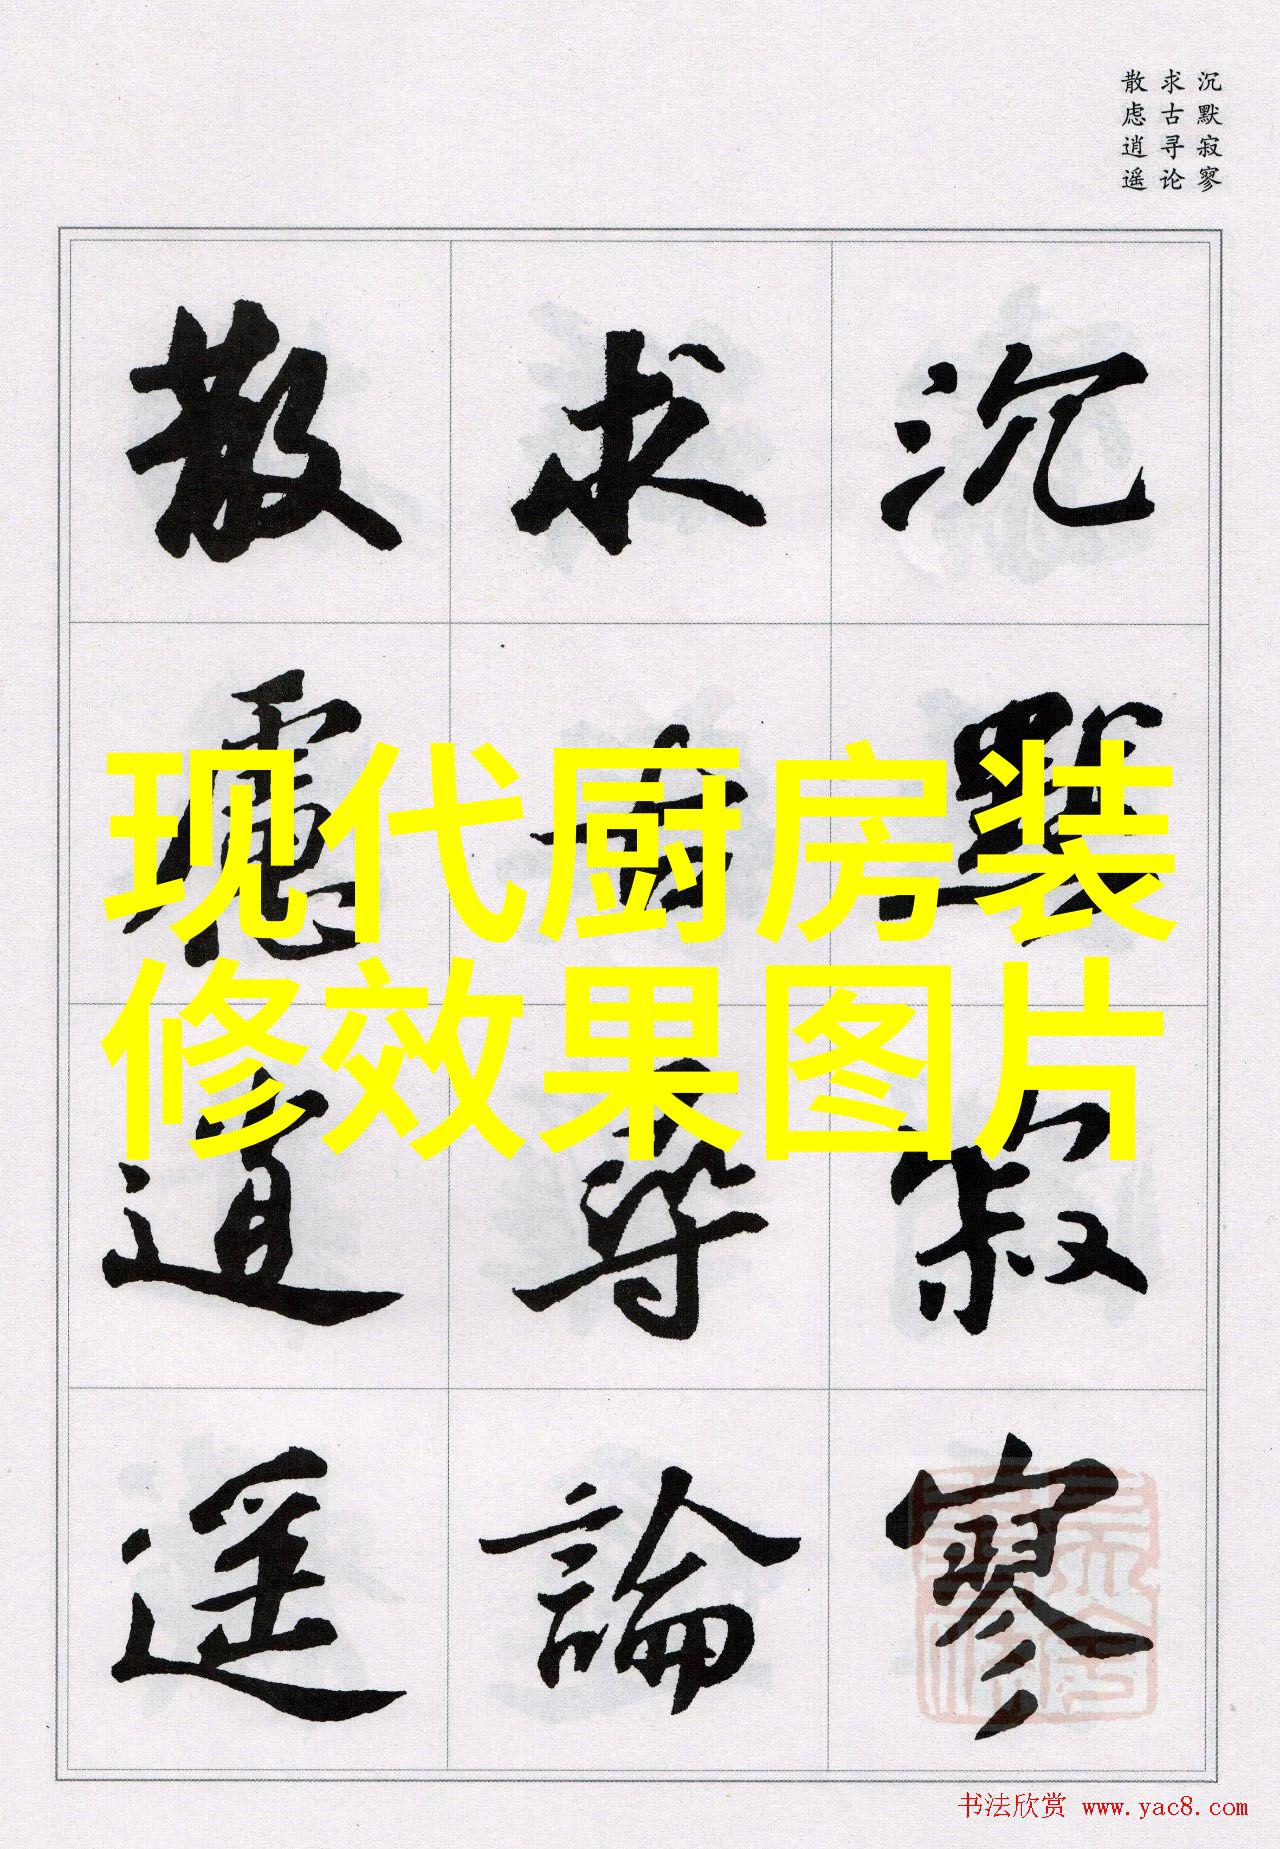 沉默寂寥
求古寻论
散虑逍遥
沉默寂寥
求古寻論
散慮逍遥
现代厨房装
修效果图片
书法欣赏 www.yac8.com